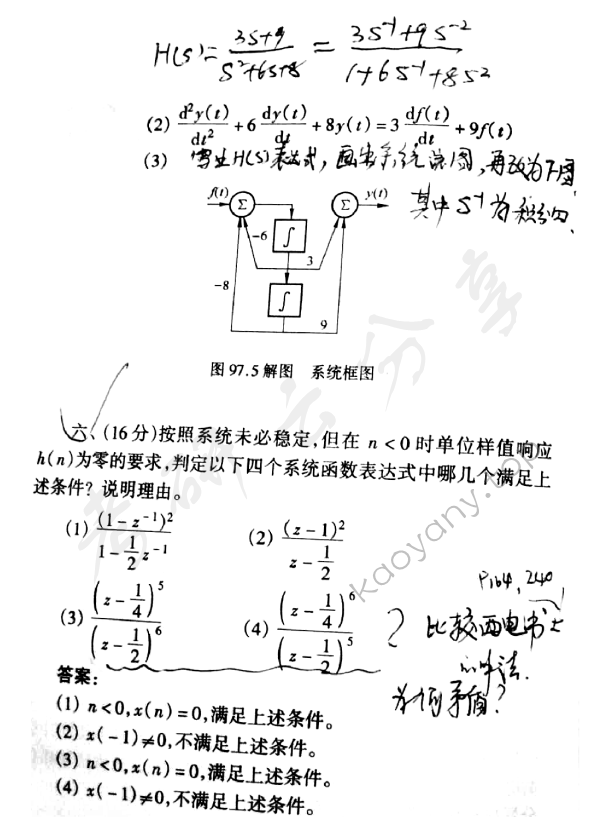 H(s)= (3s+9)/(s²+6s+8) = (3s⁻¹+9s⁻²)/(1+6s⁻¹+8s²)
(2) d²y(t)/dt² + 6 dy(t)/dt + 8y(t) = 3 df(t)/dt + 9f(t)
(3) 写出H(s)表达式，画出系统流图，再改为下图
其中 s⁻¹ 为积分
f(t) Σ Σ y(t)
-6 ∫
3
-8 ∫
9
图 97.5 解图 系统框图
六、(16 分)按照系统未必稳定,但在 n < 0 时单位样值响应
h(n)为零的要求,判定以下四个系统函数表达式中哪几个满足上
述条件? 说明理由。
(1) (1-z⁻¹)²/(1-½z⁻¹) (2) (z-1)²/(z-½)
(3) (z-¼)⁵/(z-½)⁶ (4) (z-¼)⁶/(z-½)⁵
P164, 240,
? 比较西电书上
的叫法.
为何矛盾?
答案:
(1) n<0,x(n)=0,满足上述条件。
(2) x(-1)≠0,不满足上述条件。
(3) n<0,x(n)=0,满足上述条件。
(4) x(-1)≠0,不满足上述条件。
考研云分享
kaoyany.top